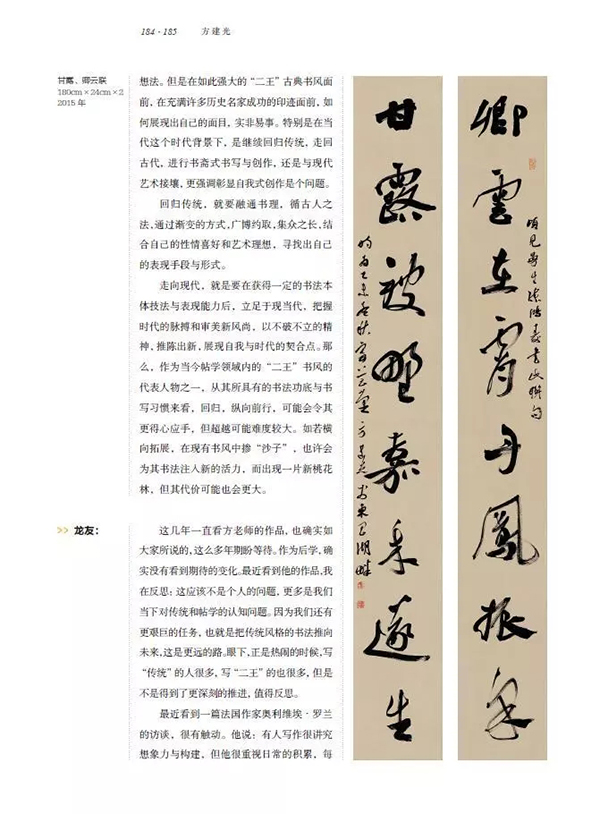 184 · 185 方建光
甘露、卿云联
180cm×24cm×2
2015 年
想法。但是在如此强大的“二王”古典书风面
前，在充满许多历史名家成功的印迹面前，如
何展现出自己的面目，实非易事。特别是在当
代这个时代背景下，是继续回归传统，走回
古代，进行书斋式书写与创作，还是与现代
艺术接壤，更强调彰显自我式创作是个问题。
回归传统，就要融通书理，循古人之
法，通过渐变的方式，广博约取，集众之长，结
合自己的性情喜好和艺术理想，寻找出自己
的表现手段与形式。
走向现代，就是要在获得一定的书法本
体技法与表现能力后，立足于现当代，把握
时代的脉搏和审美新风尚，以不破不立的精
神，推陈出新，展现自我与时代的契合点。那
么，作为当今帖学领域内的“二王”书风的
代表人物之一，从其所具有的书法功底与书
写习惯来看，回归，纵向前行，可能会令其
更得心应手，但超越可能难度较大。如若横
向拓展，在现有书风中掺“沙子”，也许会
为其书法注入新的活力，而出现一片新桃花
林，但其代价可能也会更大。
>> 龙友：
这几年一直看方老师的作品，也确实如
大家所说的，这么多年期盼等待。作为后学，确
实没有看到期待的变化。最近看到他的作品，我
在反思：这应该不是个人的问题，更多是我们
当下对传统和帖学的认知问题。因为我们还有
更艰巨的任务，也就是把传统风格的书法推向
未来，这是更远的路。眼下，正是热闹的时候，写
“传统”的人很多，写“二王”的也很多，但是
不是得到了更深刻的推进，值得反思。
最近看到一篇法国作家奥利维埃·罗兰
的访谈，很有触动。他说：有人写作很讲究
想象力与构建，但他很重视日常的积累，每
卿雲在霄丹鳳振
甘露被野嘉禾遂生